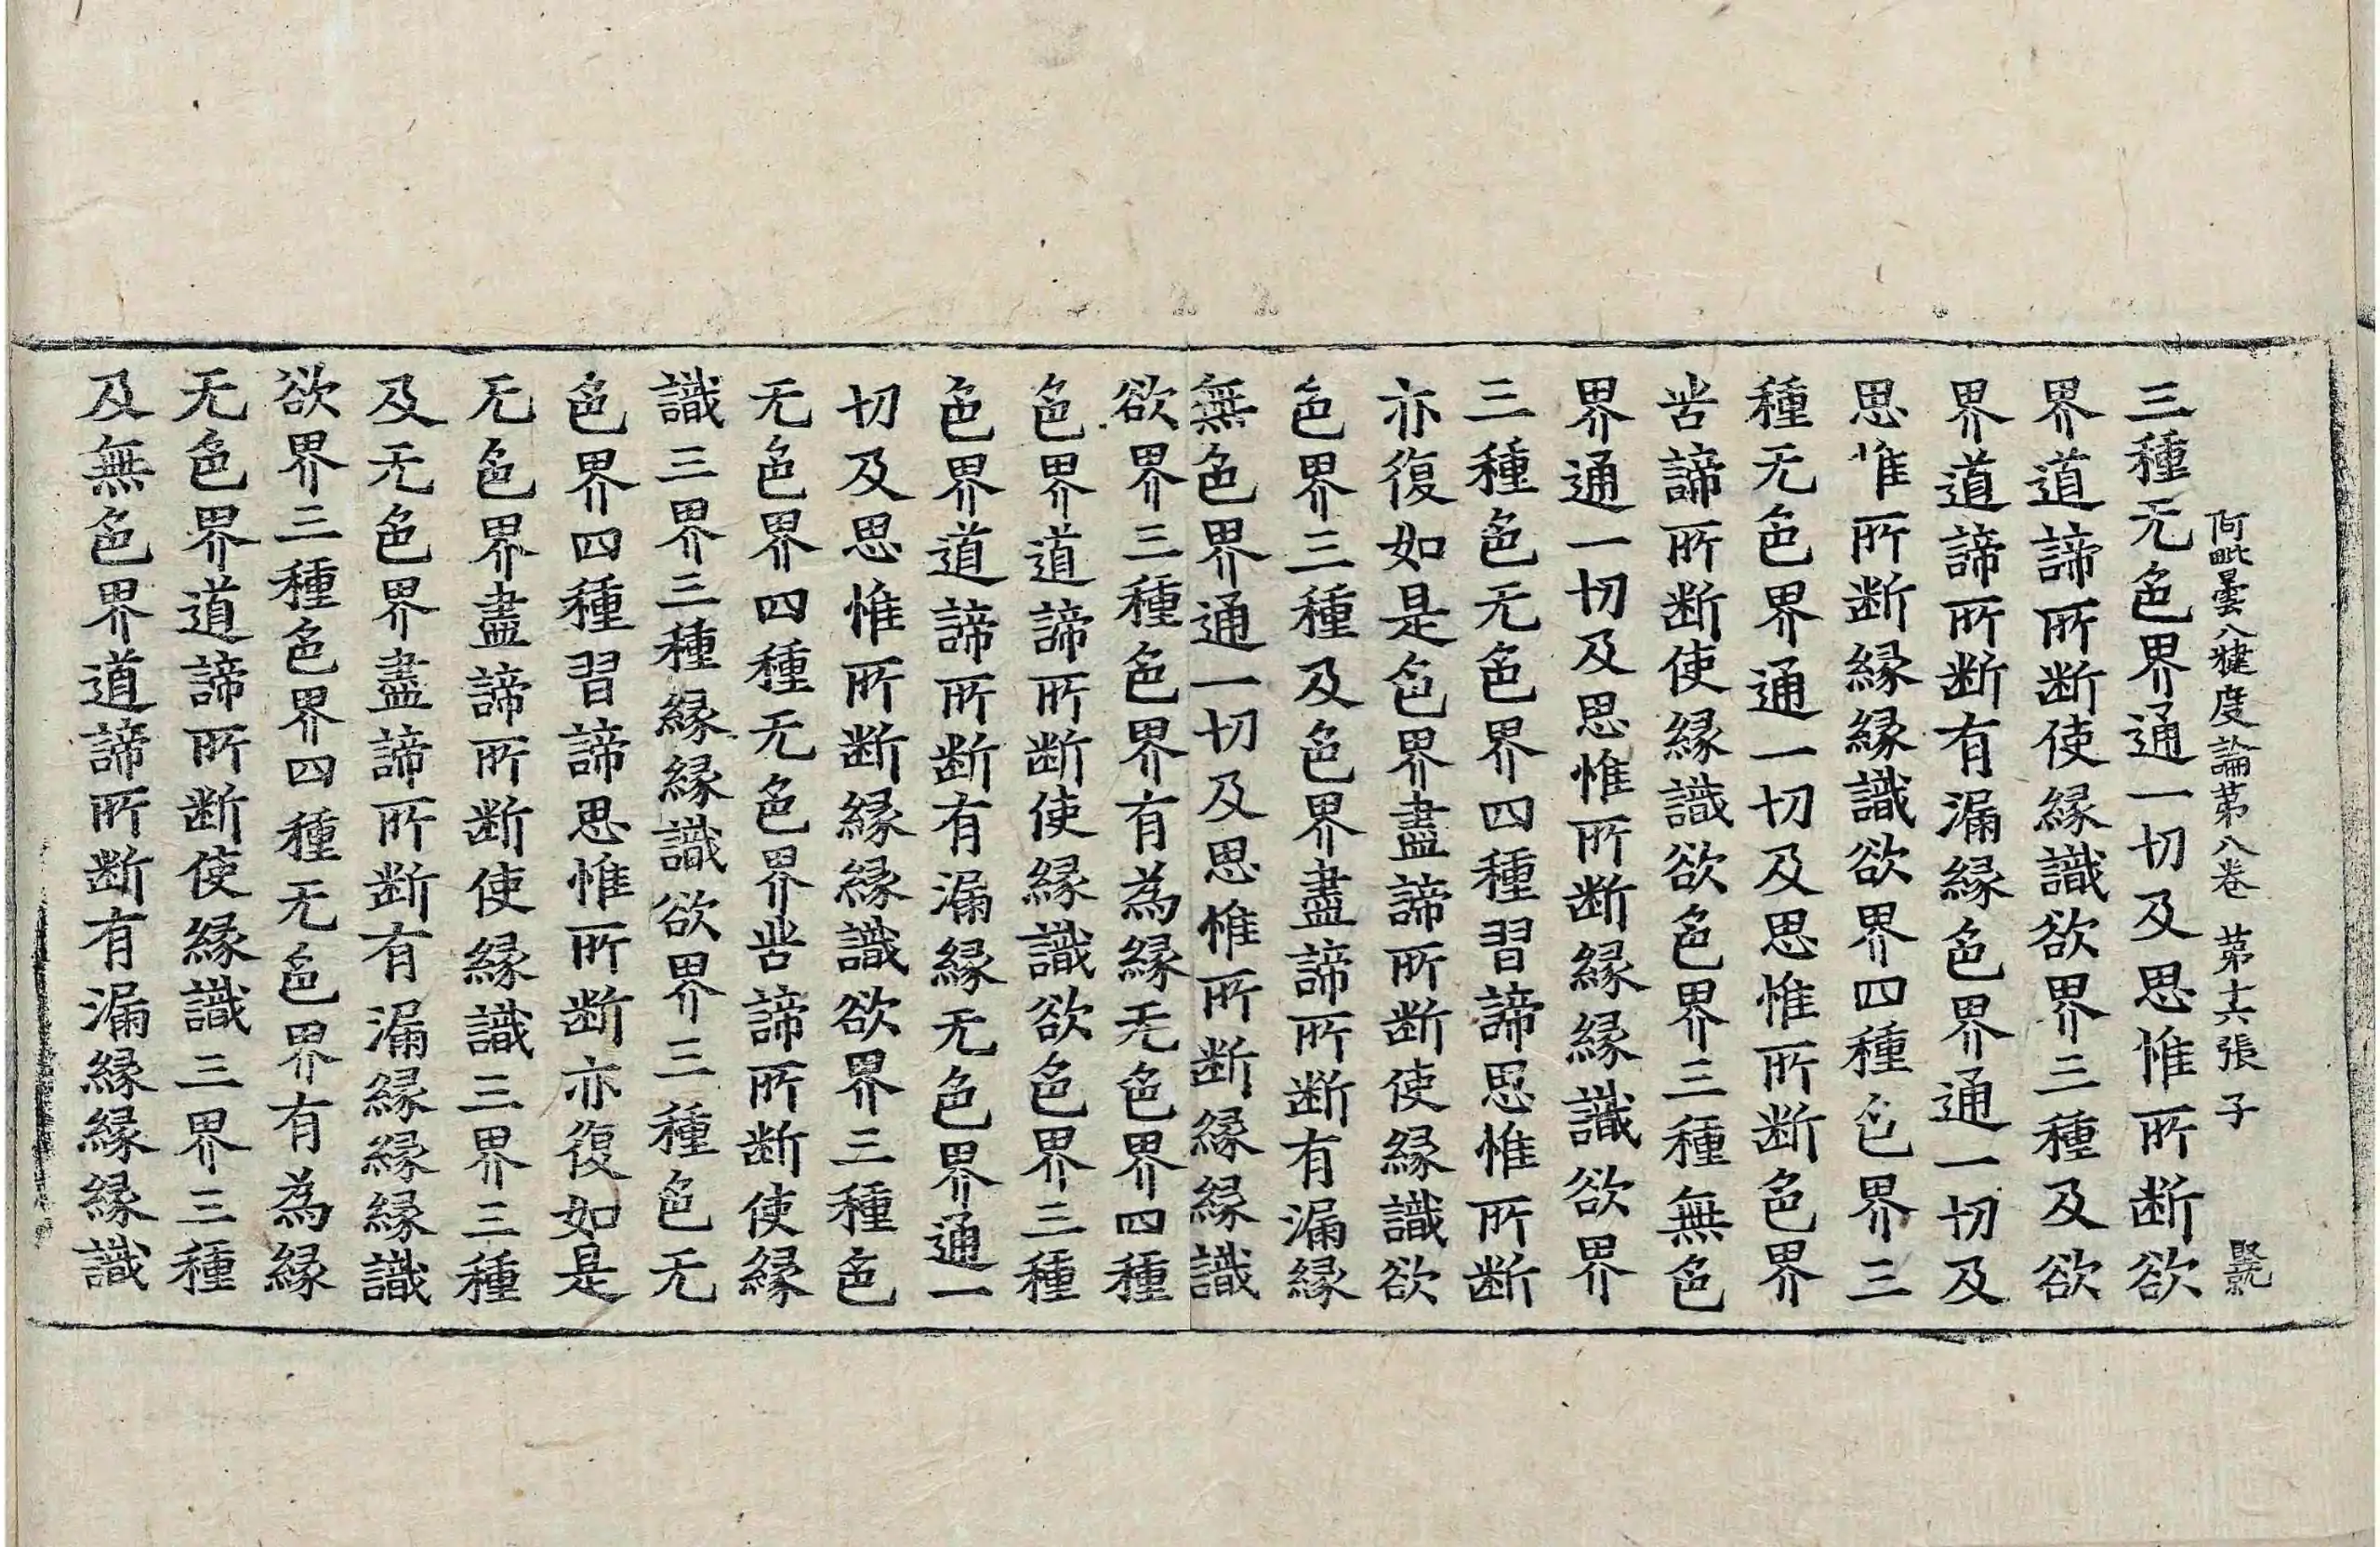 阿毗曇八犍度論第八卷　第十六張　子
三種无色界通一切及思惟所断欲
界道諦所断使縁識欲界三種及欲
界道諦所断有漏縁色界通一切及
思惟所断縁縁識欲界四種色界三
種无色界通一切及思惟所断色界
苦諦所断使縁識欲色界三種無色
界通一切及思惟所断縁縁識欲界
三種色无色界四種習諦思惟所断
亦復如是色界盡諦所断使縁識欲
色界三種及色界盡諦所断有漏縁
無色界通一切及思惟所断縁縁識
欲界三種色界有為縁无色界四種
色界道諦所断使縁識欲色界三種
色界道諦所断有漏縁无色界通一
切及思惟所断縁縁識欲界三種色
无色界四種无色界苦諦所断使縁
識三界三種縁縁識欲界三種色无
色界四種習諦思惟所断亦復如是
无色界盡諦所断使縁識三界三種
及无色界盡諦所断有漏縁縁縁識
欲界三種色界四種无色界有為縁
无色界道諦所断使縁識三界三種
及無色界道諦所断有漏縁縁縁識